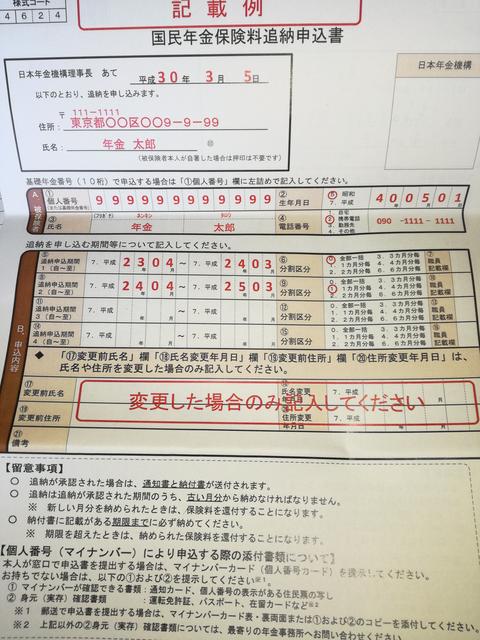 様式コード
4 6 2 4
記載例
国民年金保険料追納申込書
日本年金機構理事長 あて
平成30年 3月 5日
以下のとおり、追納を申し込みます。
〒 111-1111
住所： 東京都〇〇区〇〇9-9-99
氏名： 年金 太郎 ㊞
(被保険者本人が自署した場合は押印は不要です)
日本年金機構
基礎年金番号(10桁)で申込する場合は「①個人番号」欄に左詰めで記入してください。
A. 被保険者
① 個人番号
(または基礎年金番号)
9 9 9 9 9 9 9 9 9 9 9 9
② 生年月日
5. 昭和
7. 平成
4 0 0 5 0 1
③ 氏名
(フリガナ) ネンキン タロウ
年金 太郎
④ 電話番号
1. 自宅
2. 携帯電話
3. 勤務先
4. その他
090 -1111 - 1111
追納を申し込む期間等について記入してください。
B. 申込内容
⑤ 追納申込期間
1 (自～至)
7. 平成 2 3 0 4 ～ 7. 平成 2 4 0 3
⑥ 分割区分
0. 全部一括 3. 3カ月分毎
1. 1カ月分毎 4. 4カ月分毎
2. 2カ月分毎 6. 6カ月分毎
⑦ 職員記載欄
⑧ 追納申込期間
2 (自～至)
7. 平成 2 4 0 4 ～ 7. 平成 2 5 0 3
⑨ 分割区分
0. 全部一括 3. 3カ月分毎
1. 1カ月分毎 4. 4カ月分毎
2. 2カ月分毎 6. 6カ月分毎
⑩ 職員記載欄
⑪ 追納申込期間
3 (自～至)
7. 平成 ～ 7. 平成
⑫ 分割区分
0. 全部一括 3. 3カ月分毎
1. 1カ月分毎 4. 4カ月分毎
2. 2カ月分毎 6. 6カ月分毎
⑬ 職員記載欄
⑭ 追納申込期間
4 (自～至)
7. 平成 ～ 7. 平成
⑮ 分割区分
0. 全部一括 3. 3カ月分毎
1. 1カ月分毎 4. 4カ月分毎
2. 2カ月分毎 6. 6カ月分毎
⑯ 職員記載欄
◆ 「⑰変更前氏名」欄「⑱氏名変更年月日」欄「⑲変更前住所」欄「⑳住所変更年月日」は、
氏名や住所を変更した場合のみ記入してください。
⑰ 変更前氏名
⑱ 氏名変更年月日
7. 平成
変更した場合のみ記入してください
⑲ 変更前住所
⑳ 住所変更年月日
7. 平成
㉑ 備考
【留意事項】
〇 追納が承認された場合は、通知書と納付書が送付されます。
〇 追納は追納が承認された期間のうち、古い月分から納めなければなりません。
※ 新しい月分を納められたときは、保険料を還付することになります。
〇 納付書に記載がある期限までに必ず納めてください。
※ 期限を超えたときは、納められた保険料を還付することになります。
【個人番号(マイナンバー)により申込する際の添付書類について】
本人が窓口で申込書を提出する場合は、マイナンバーカード(個人番号カード)を提示してください。
お持ちでない場合は、以下の①および②を提示してください※1。
① マイナンバーが確認できる書類：通知カード、個人番号の表示がある住民票の写し
② 身元(実存)確認書類 ：運転免許証、パスポート、在留カードなど※2
※1 郵送で申込書を提出する場合は、マイナンバーカード表・裏両面または①および②のコピーを添付してください。
※2 上記以外の②身元(実存)確認書類については、最寄りの年金事務所へお問い合わせください。